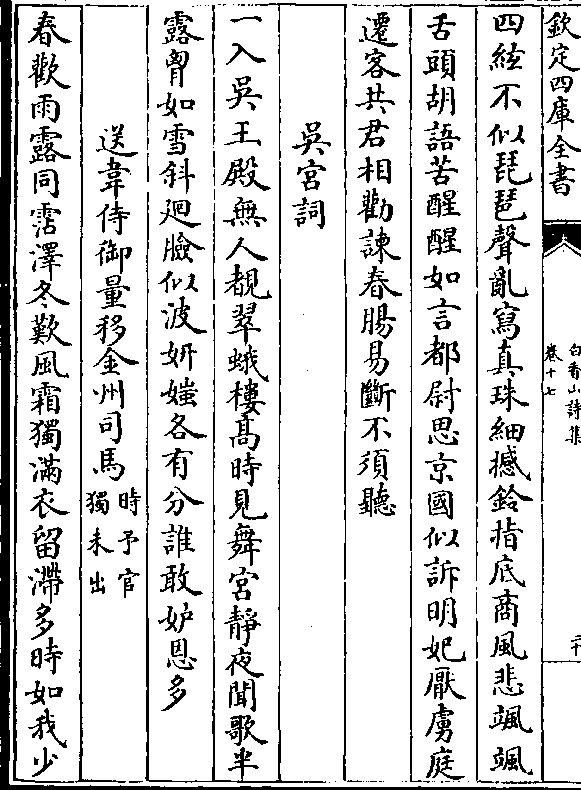 欽定四庫全書
白香山詩集
卷十七
二十
四絃不似琵琶聲亂寫真珠細撼鈴指底商風悲颯颯
舌頭胡語苦醒醒如言都尉思京國似訴明妃厭虜庭
遷客共君相勸諫春腸易斷不須聽
吳宮詞
一入吳王殿無人覩翠蛾樓髙時見舞宮靜夜聞歌半
露胷如雪斜廻臉似波妍媸各有分誰敢妒恩多
送韋侍御量移金州司馬時予官獨未出
春歡雨露同霑澤冬歎風霜獨滿衣留滯多時如我少